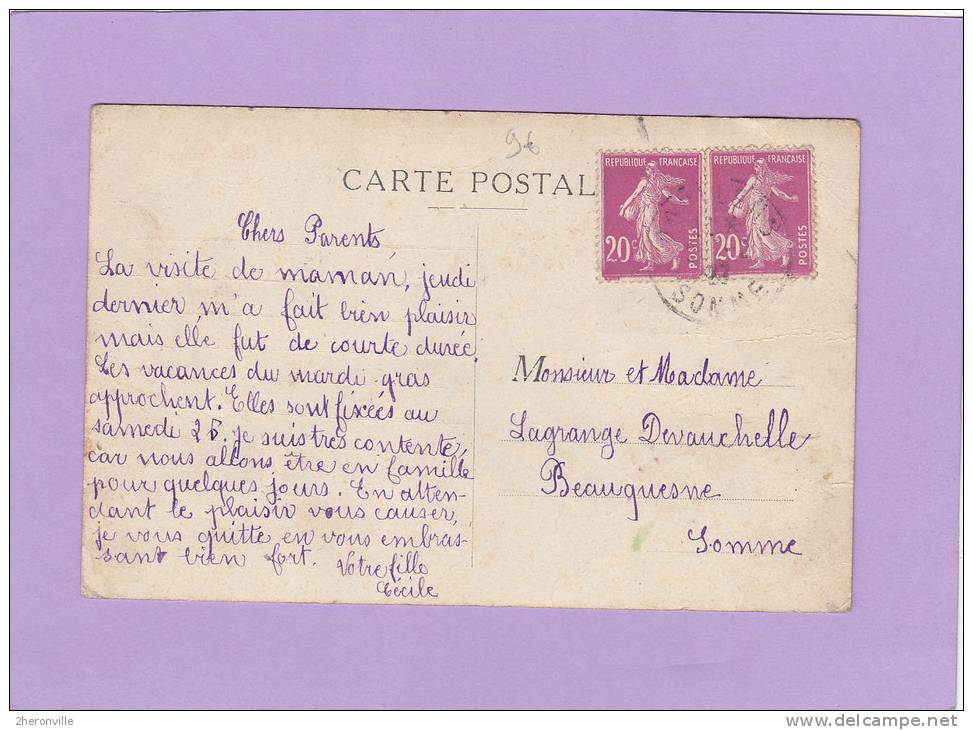 9€
CARTE POSTAL
REPUBLIQUE FRANÇAISE
20c
POSTES
REPUBLIQUE FRANÇAISE
20c
POSTES
SOMME
Chers Parents
La visite de maman, jeudi
dernier m'a fait bien plaisir
mais elle fut de courte durée.
Les vacances du mardi-gras
approchent. Elles sont fixées au
samedi 25. Je suis très contente,
car nous allons être en famille
pour quelques jours. En atten-
dant le plaisir vous causer,
je vous quitte en vous embras-
sant bien fort.
Votre fille
Cécile
Monsieur et Madame
Lagrange Devauchelle
Beauquesne
Somme
2heronville
www.delcampe.net